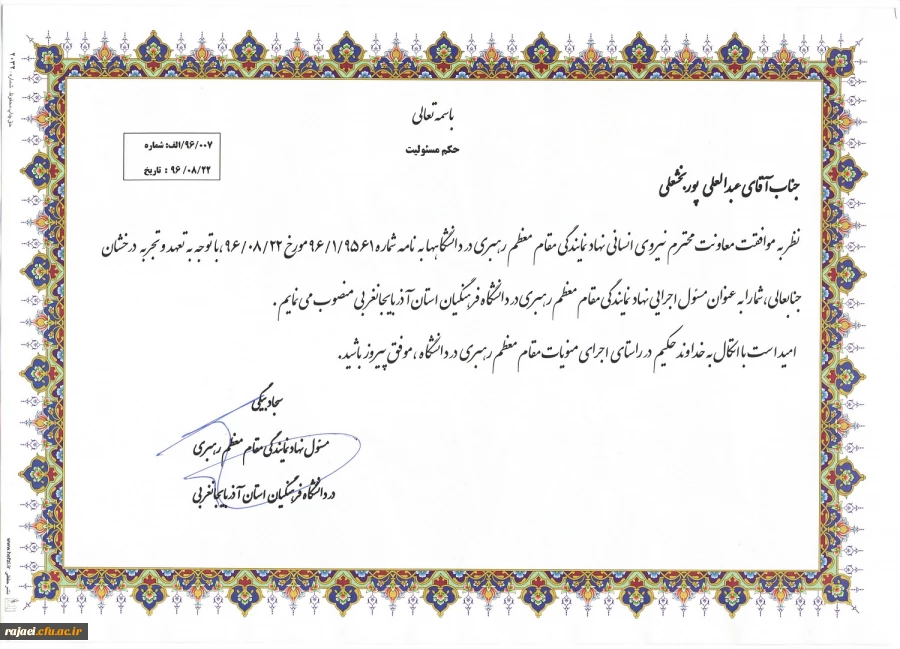 باسمه تعالی
حکم مسئولیت
۹۶/۰۰۷/الف: شماره
۹۶ /۰۸/۲۲ : تاریخ
جناب آقای عبدالعلی پوربخشعلی
نظر به موافقت معاونت محترم نیروی انسانی نهاد نمایندگی مقام معظم رهبری در دانشگاهها به نامه شماره ۹۶/۱/۹۵۶۱ مورخ ۹۶/۰۸/۲۲ با توجه به تعهد و تجربه درخشان
جنابعالی، شما را به عنوان مسئول اجرایی نهاد نمایندگی مقام معظم رهبری در دانشگاه فرهنگیان استان آذربایجانغربی منصوب می نمایم .
امید است با اتکال به خداوند حکیم در راستای اجرای منویات مقام معظم رهبری در دانشگاه ، موفق پیروز باشید.
سجاد بیگی
مسئول نهاد نمایندگی مقام معظم رهبری
در دانشگاه فرهنگیان استان آذربایجانغربی
rajaei.cfu.ac.ir